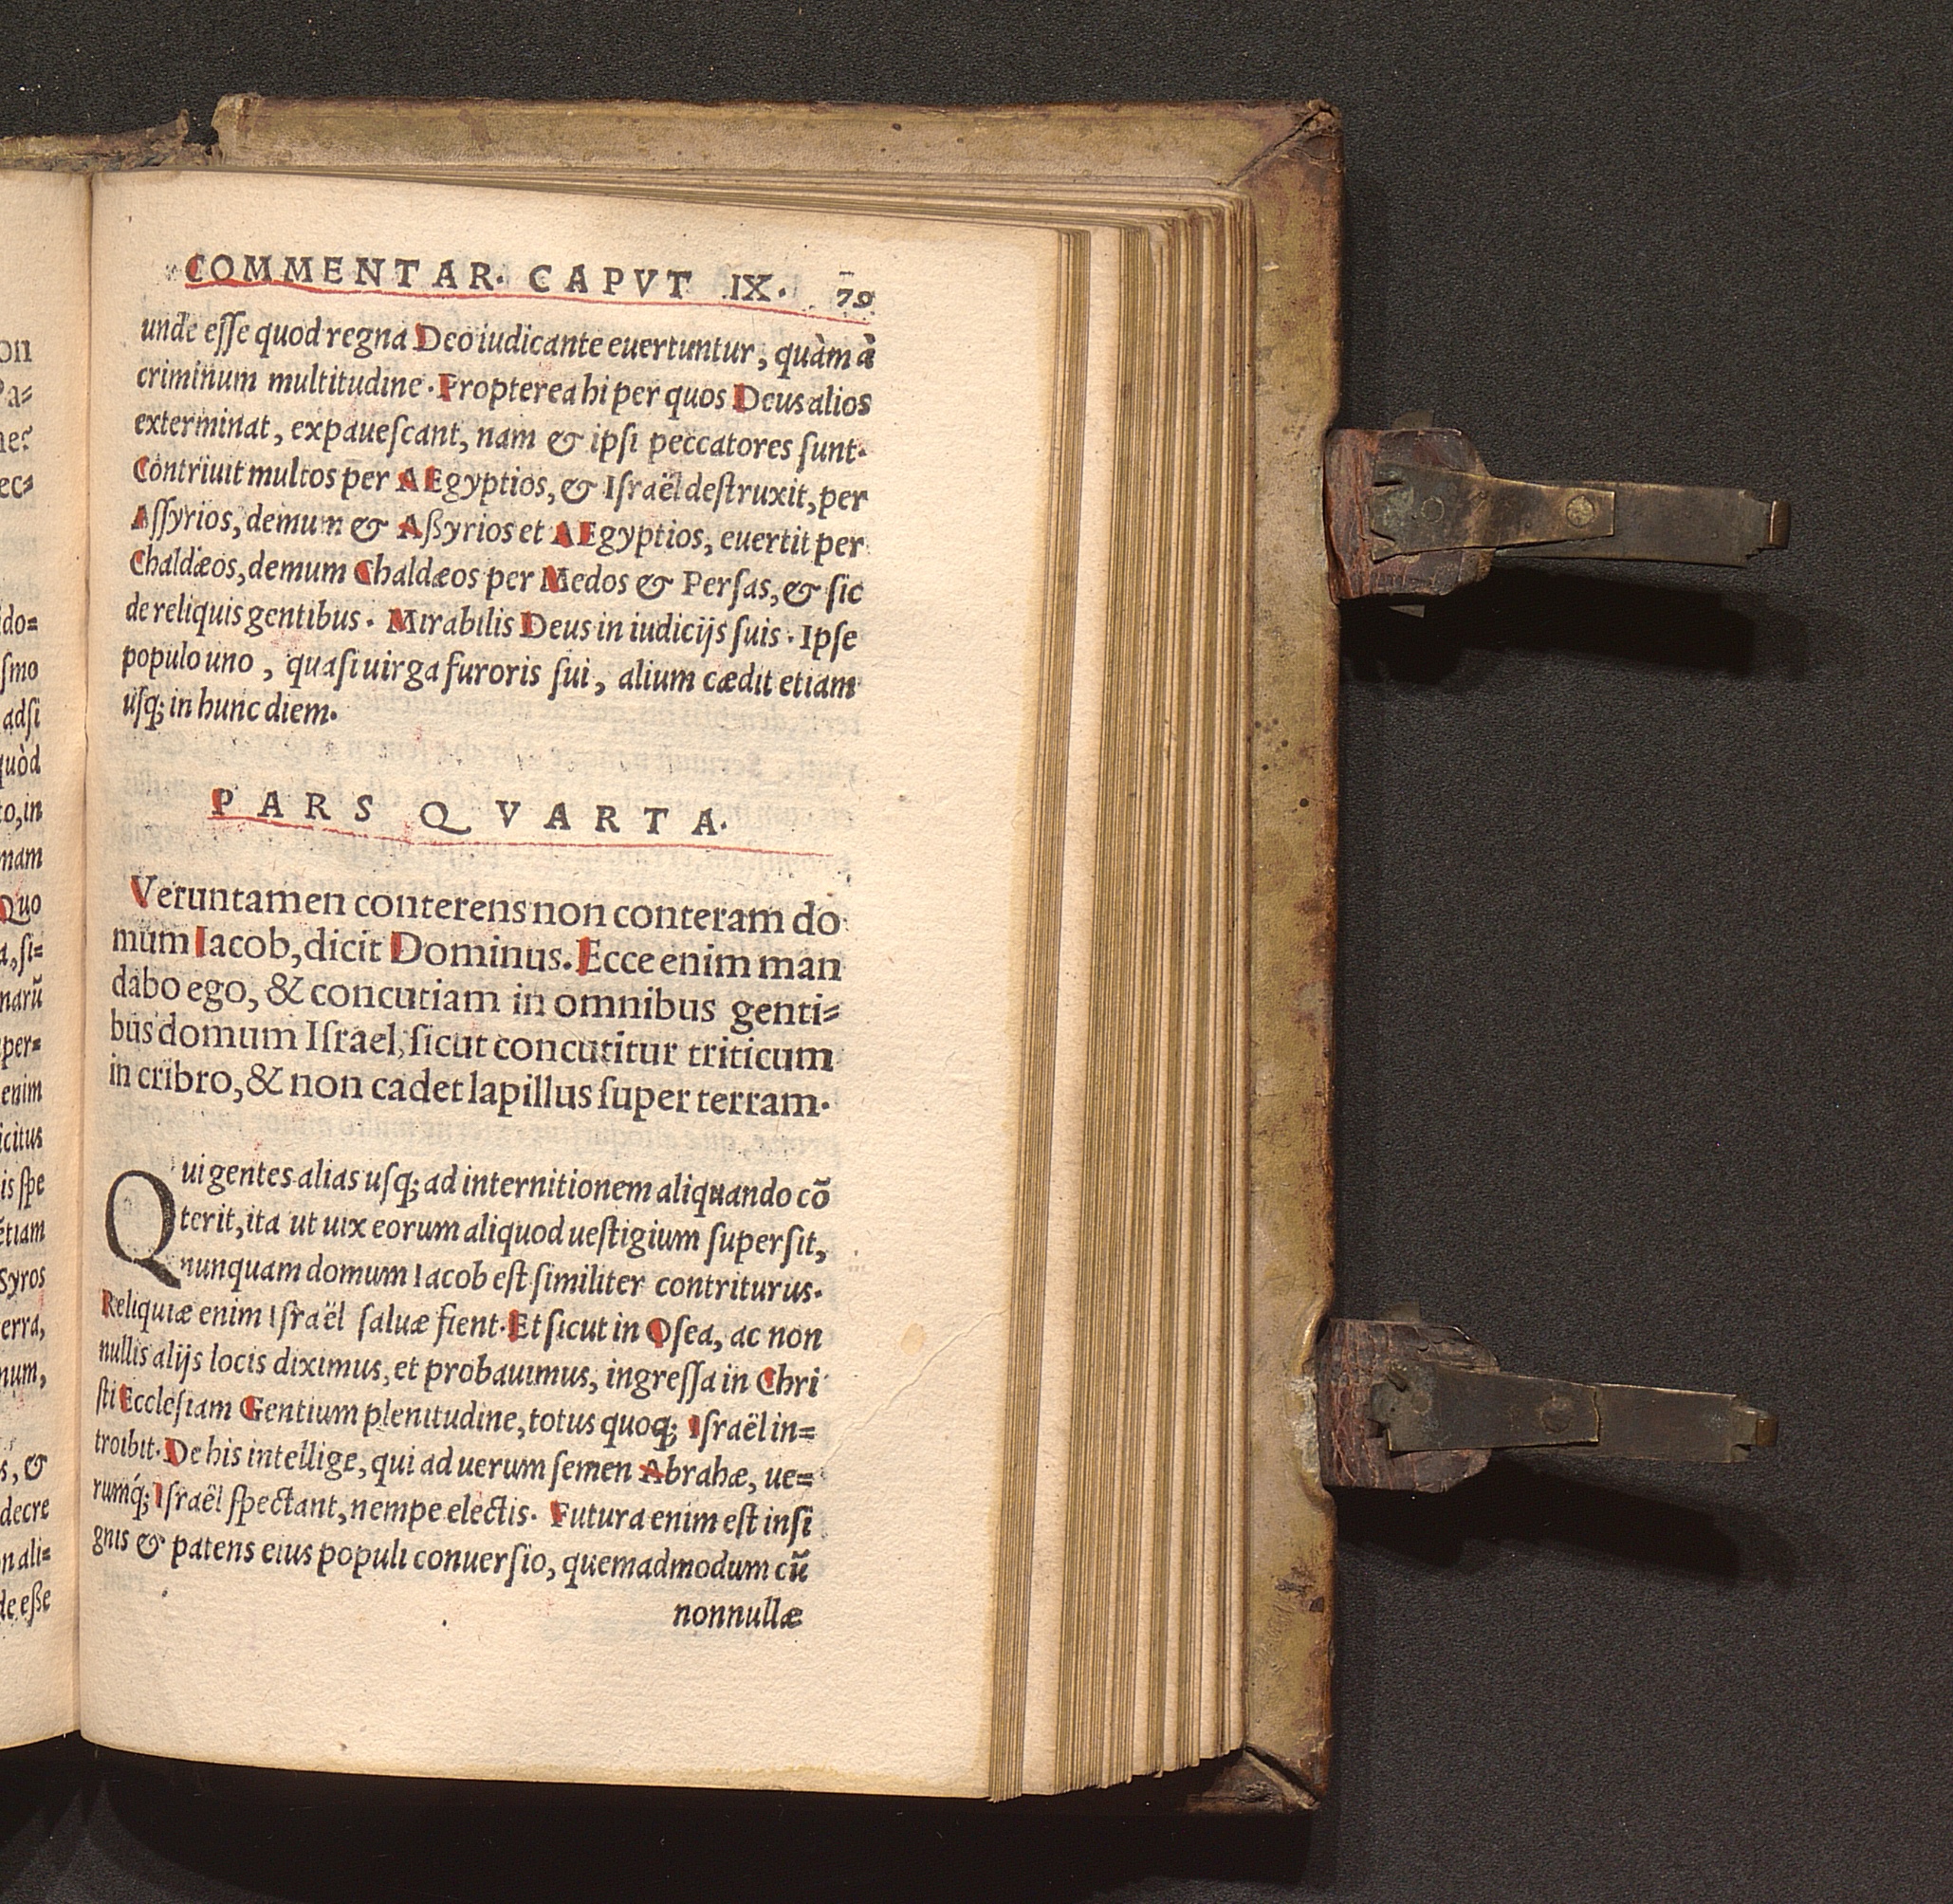 COMMENTAR. CAPVT IX. 79
unde eſſe quod regna Deo iudicante euertuntur, quàm à
criminum multitudine. Propterea hi per quos Deus alios
exterminat, expaueſcant, nam & ipſi peccatores ſunt.
Contriuit multos per AEgyptios, & Iſraël deſtruxit, per
Aſſyrios, demum & Aßyrios et AEgyptios, euertit per
Chaldæos, demum Chaldæos per Medos & Perſas, & ſic
de reliquis gentibus. Mirabilis Deus in iudicijs ſuis. Ipſe
populo uno, quaſi uirga furoris ſui, alium cædit etiam
uſq; in hunc diem.
PARS QVARTA.
Veruntamen conterens non conteram do
mum Iacob, dicit Dominus. Ecce enim man
dabo ego, & concutiam in omnibus genti=
bus domum Iſrael, ſicut concutitur triticum
in cribro, & non cadet lapillus ſuper terram.
Qui gentes alias uſq; ad internitionem aliquando cō
terit, ita ut uix eorum aliquod ueſtigium ſuperſit,
nunquam domum Iacob eſt ſimiliter contriturus.
Reliquiæ enim Iſraël ſaluæ fient. Et ſicut in Oſea, ac non
nullis alijs locis diximus, et probauimus, ingreſſa in Chri
ſti Eccleſiam Gentium plenitudine, totus quoq; Iſraël in=
troibit. De his intellige, qui ad uerum ſemen Abrahæ, ue=
rumq́; Iſraël ſpectant, nempe electis. Futura enim eſt inſi
gnis & patens eius populi conuerſio, quemadmodum cū
nonnullæ